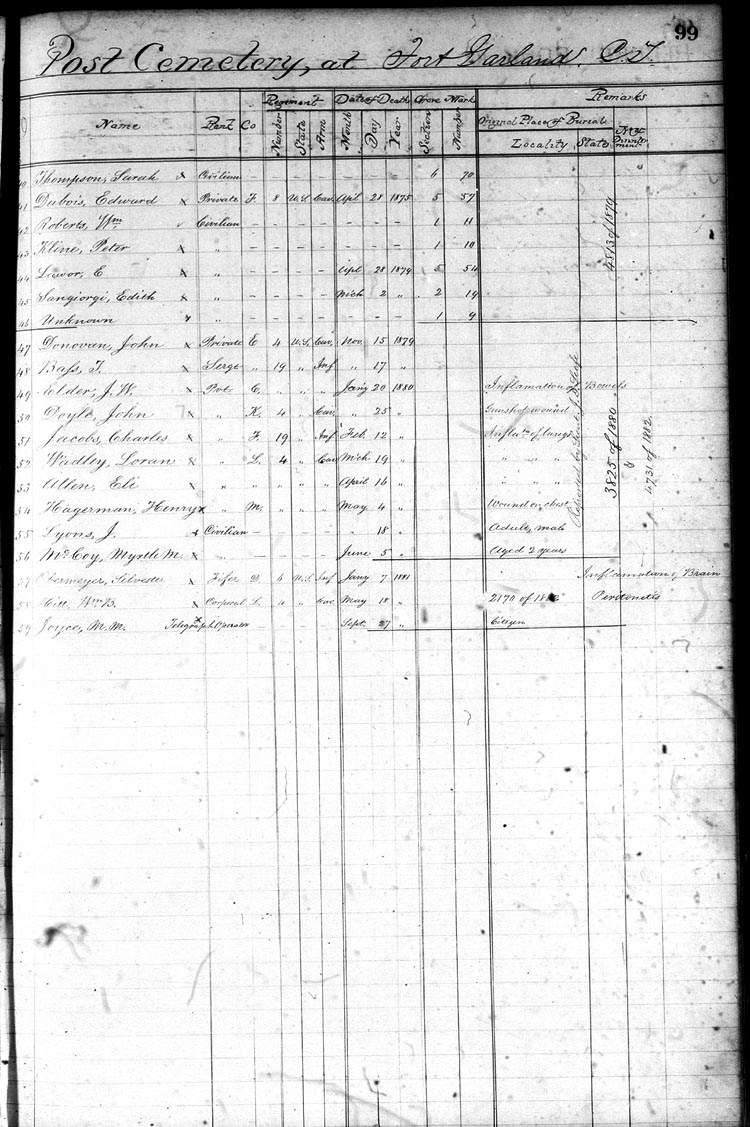 99
Post Cemetery, at Fort Garland. C.T.
Name Rank Co Regiment Date of Death Grave Mark Remarks
Number State Arm Month Day Year Section Number Original Place of Burial
Locality State
40 Thompson, Sarah x Civilian – – – – – – – 6 70
41 Dubois, Edward x Private F. 8 U.S. Cav. Apl. 28 1875 5 57
42 Roberts, Wm Civilian – – – – – – – 1 11
43 Kline, Peter x " – – – – – – – 1 10
44 E x " – – – – Apl 28 1879 5 54
45 Sangiorgi, Edith x " – – – – Mch 2 " 2 19
46 Unknown x " – – – – – – – 1 9
4813 of 1879
47 Donovan, John x Private E 4 U.S. Cav. Nov. 15 1879
48 Bass, T. x Serg. " 19 " Inf " 17 "
49 Elder, J. W. x Pvt C. " " " Jany 20 1880 Inflamation of Bowels
50 Doyle, John " K. 4 " Cav. " 25 " Gunshot wound
51 Jacobs, Charles x " F. 19 " Inf Feb. 12 " Inflatn of lungs
52 Wadley, Loran x " L. 4 " Cav Mch 19 " " " "
53 Allen, Eli x " " " " " April 16 " " " "
54 Hagerman, Henry x " M. " " " May 4 " Wound on chest
55 Lyons, J. x Civilian – – – – " 18 " Adult, male
56 McCoy, Myrtle M. x " – – – – June 5 " Aged 2 years
Reported by Lieut.
3825 of 1880
&
4731 of 1882.
57 Obermeyer, Silvester x Fifer D. 6 U.S. Inf Jany 7 1881 Inflamation, Brain
58 Hitt, Wm B. x Corporal L. 4 " Cav May 18 " 2174 of
59 Joyce, M. M. x Telegraph Operator – – – Sept. 27 " Citizen